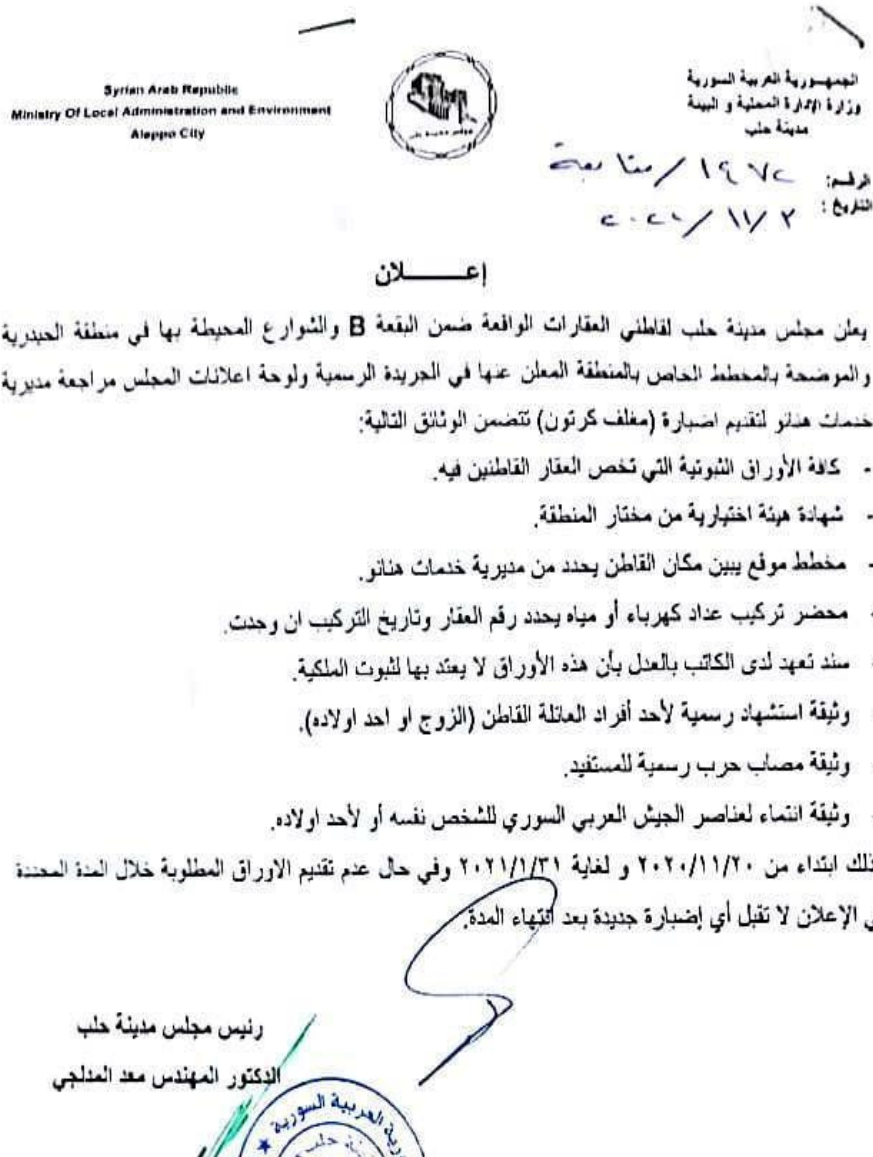 Syrian Arab Republic
Ministry Of Local Administration and Environment
Aleppo City
الجمهورية العربية السورية
وزارة الإدارة المحلية و البيئة
مدينة حلب
الرقم: ١٩٧٢ / متابعة
التاريخ: ٣ / ١١ / ٢٠٢٠
إعـــــــلان
يعلن مجلس مدينة حلب لقاطني العقارات الواقعة ضمن البقعة B والشوارع المحيطة بها في منطقة الحيدرية
والموضحة بالمخطط الخاص بالمنطقة المعلن عنها في الجريدة الرسمية ولوحة اعلانات المجلس مراجعة مديرية
خدمات هنانو لتقديم اضبارة (مغلف كرتون) تتضمن الوثائق التالية:
- كافة الأوراق الثبوتية التي تخص العقار القاطنين فيه.
- شهادة هيئة اختيارية من مختار المنطقة.
- مخطط موقع يبين مكان القاطن يحدد من مديرية خدمات هنانو.
- محضر تركيب عداد كهرباء أو مياه يحدد رقم العقار وتاريخ التركيب ان وجدت.
- سند تعهد لدى الكاتب بالعدل بأن هذه الأوراق لا يعتد بها لثبوت الملكية.
- وثيقة استشهاد رسمية لأحد أفراد العائلة القاطن (الزوج او احد اولاده).
- وثيقة مصاب حرب رسمية للمستفيد.
- وثيقة انتماء لعناصر الجيش العربي السوري للشخص نفسه أو لأحد اولاده.
ذلك ابتداء من ٢٠٢٠/١١/٢٠ و لغاية ٢٠٢١/١/٣١ وفي حال عدم تقديم الاوراق المطلوبة خلال المدة المحددة
الإعلان لا تقبل أي إضبارة جديدة بعد انتهاء المدة.
رئيس مجلس مدينة حلب
الدكتور المهندس معد المدلجي
العربية السورية